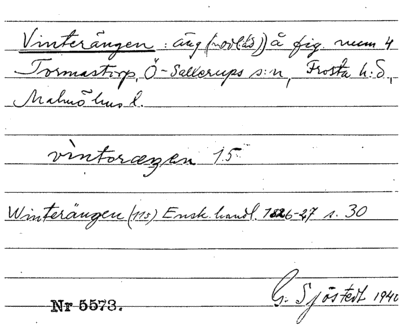 Vinterängen : äng (norläs) å fig. num 4
Tormastorp, Ö-Sallerups s:n, Frosta h:d,
Malmöhus l.
vintoræŋen 15
Winterängen (115) Ensk. handl. 1826-27 s. 30
Nr 5573. G. Sjöstedt 1940